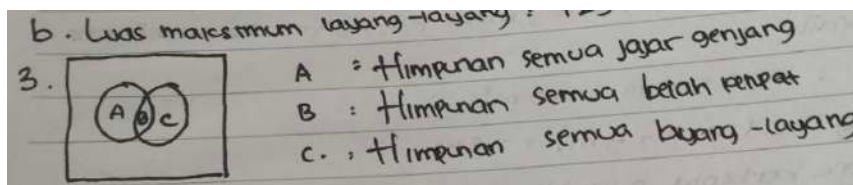 b. Luas maksimum layang-layang :
3.
A : Himpunan semua jajar genjang
A B C
B : Himpunan semua belah ketupat
C. : Himpunan semua layang-layang